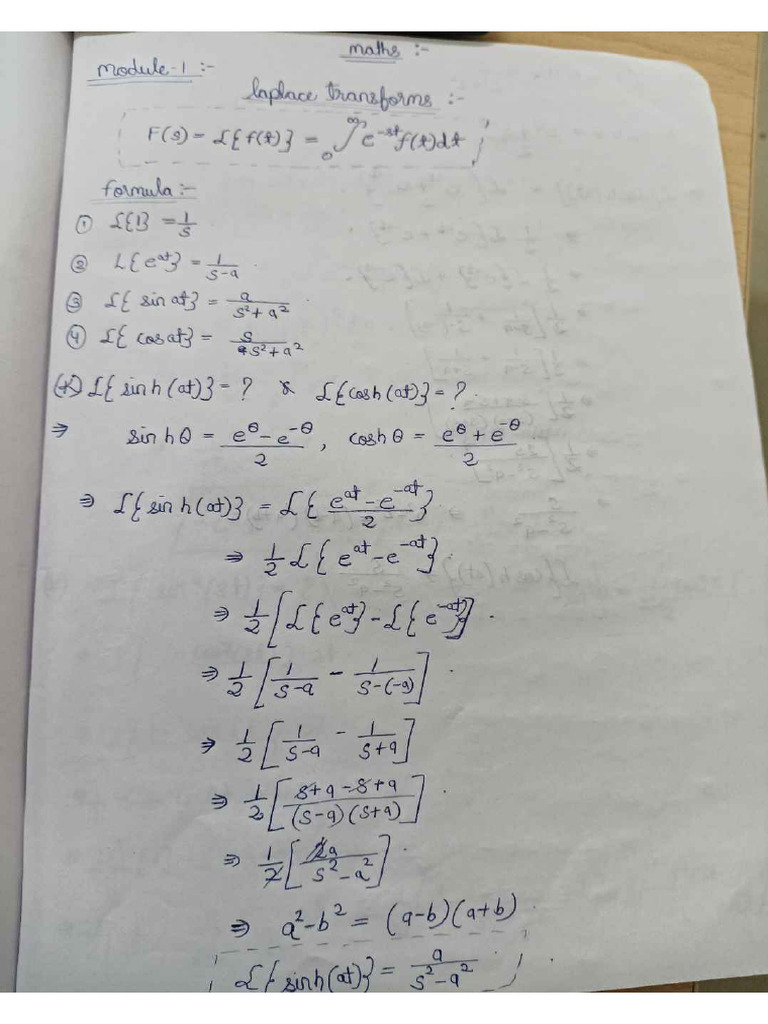 maths :-
module-1 :-
laplace transforms :-
F(s) = L{f(t)} = ∫₀^∞ e^-st f(t)dt
formula :-
① L{1} = 1/s
② L{e^at} = 1/(s-a)
③ L{sin at} = a/(s²+a²)
④ L{cos at} = s/(s²+a²)
(*) L{sinh(at)} = ? & L{cosh(at)} = ?
⇒ sinhθ = (e^θ - e^-θ)/2, coshθ = (e^θ + e^-θ)/2
⇒ L{sinh(at)} = L{(e^at - e^-at)/2}
⇒ 1/2 L{e^at - e^-at}.
⇒ 1/2 [L{e^at} - L{e^-at}].
⇒ 1/2 [1/(s-a) - 1/(s-(-a))].
⇒ 1/2 [1/(s-a) - 1/(s+a)]
⇒ 1/2 [(s+a-s+a)/((s-a)(s+a))].
⇒ 1/2 [2a/(s²-a²)].
⇒ a²-b² = (a-b)(a+b).
L{sinh(at)} = a/(s²-a²).